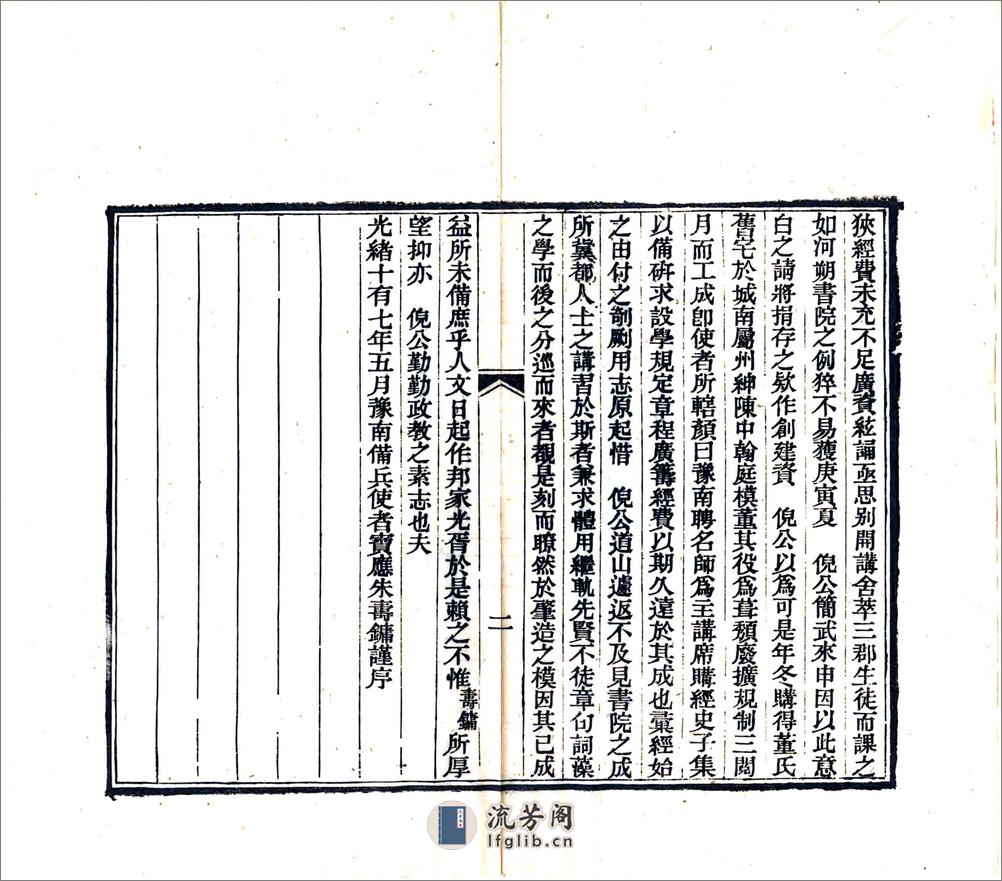 狹經費未充不足廣資絃誦亟思别開講舍萃三郡生徒而課之
如河朔書院之例猝不易獲庚寅夏　倪公簡武來申因以此意
白之請將捐存之欵作創建資　倪公以爲可是年冬購得董氏
舊宅於城南屬州紳陳中翰庭模董其役爲葺頽廢擴規制三閱
月而工成卽使者所轄顏曰豫南聘名師爲主講席購經史子集
以備硏求設學規定章程廣籌經費以期久遠於其成也彚經始
之由付之剞劂用志原起惜　倪公道山遽返不及見書院之成
所冀都人士之講習於斯者兼求體用繼軌先賢不徒章句詞藻
之學而後之分巡而來者觀是刻而瞭然於肇造之模因其已成
二
益所未備庶乎人文日起作邦家光胥於是賴之不惟壽鏞所厚
望抑亦　倪公勤勤政教之素志也夫
光緒十有七年五月豫南備兵使者寶應朱壽鏞謹序
流芳阁
lfglib.cn